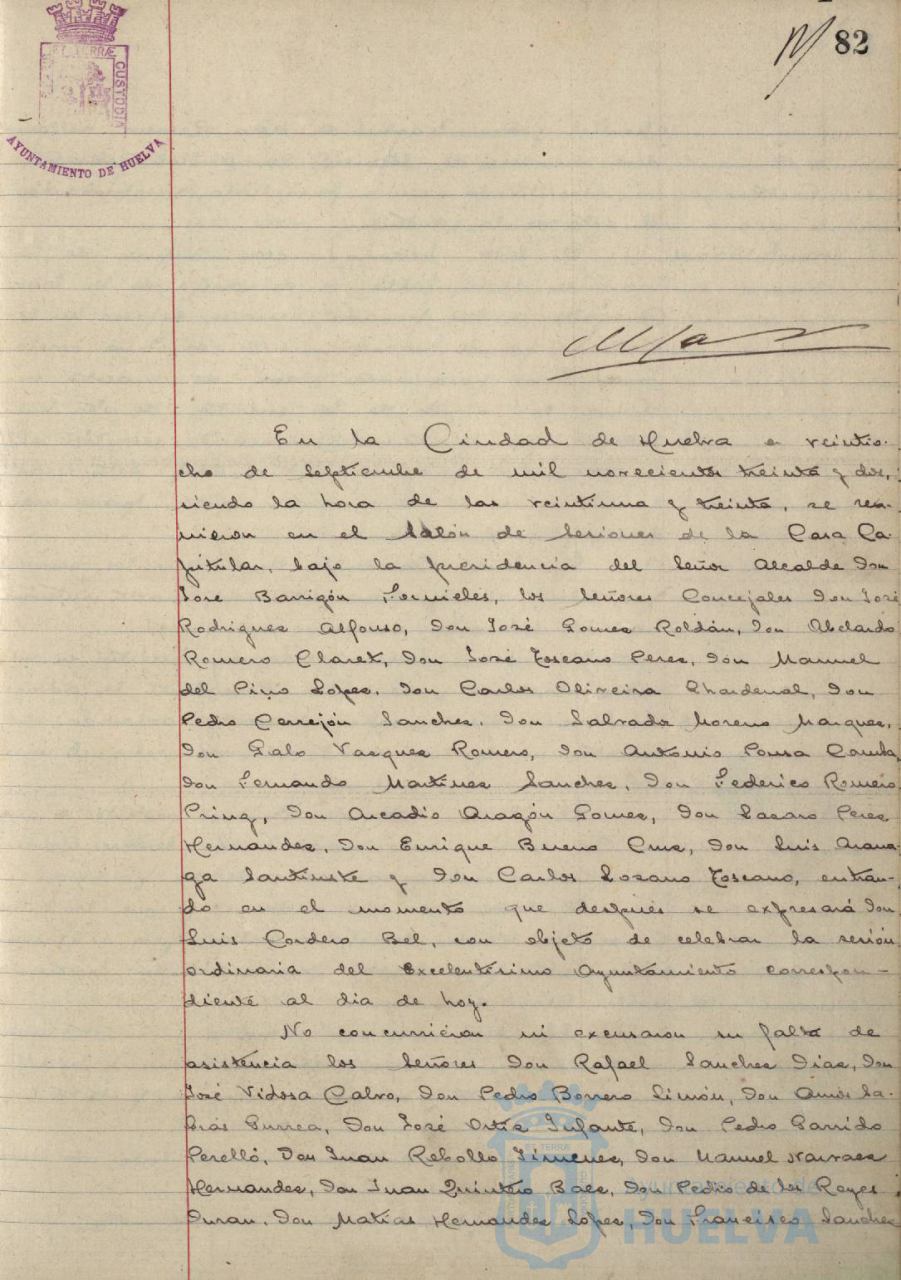 82
ET TERRÆ
CUSTODIA
AYUNTAMIENTO DE HUELVA
En la Ciudad de Huelva a veintio-
cho de septiembre de mil novecientos treinta y dos,
siendo la hora de las veintiuna y treinta, se reu-
nieron en el Salón de Sesiones de la Casa Ca-
pitular, bajo la presidencia del Señor Alcalde Don
José Barrigón Fornieles, los Señores Concejales Don José
Rodriguez Alfonso, Don José Gomez Roldán, Don Abelardo
Romero Claret, Don José Toscano Perez, Don Manuel
del Pino Lopez, Don Carlos Oliveira Chardenal, Don
Pedro Cerrejón Sanchez, Don Salvador Moreno Marquez,
Don Galo Vazquez Romero, Don Antonio Pousa Camba,
Don Fernando Martinez Sanchez, Don Federico Romero
Pring, Don Arcadio Aragón Gomez, Don Lazaro Perez
Hernandez, Don Enrique Bueno Cruz, Don Luis Arana-
ga y Don Carlos Lozano Toscano, entran-
do en el momento que después se expresará Don
Luis Cordero Bel, con objeto de celebrar la sesión
ordinaria del Excelentisimo Ayuntamiento correspon-
diente al dia de hoy.
No concurrieron ni excusaron su falta de
asistencia los Señores Don Rafael Sanchez Diaz, Don
José Vidosa Calvo, Don Pedro Borrero Limón, Don Amós Sa-
brás Gurrea, Don José Ortiz Infante, Don Pedro Garrido
Perelló, Don Juan Rebollo Jimenez, Don Manuel Narvaez
Hernandez, Don Juan Quintero Baez, Don Pedro de los Reyes
Duran, Don Matias Hernandez López, Don Francisco Sanchez
Ayuntamiento de
HUELVA